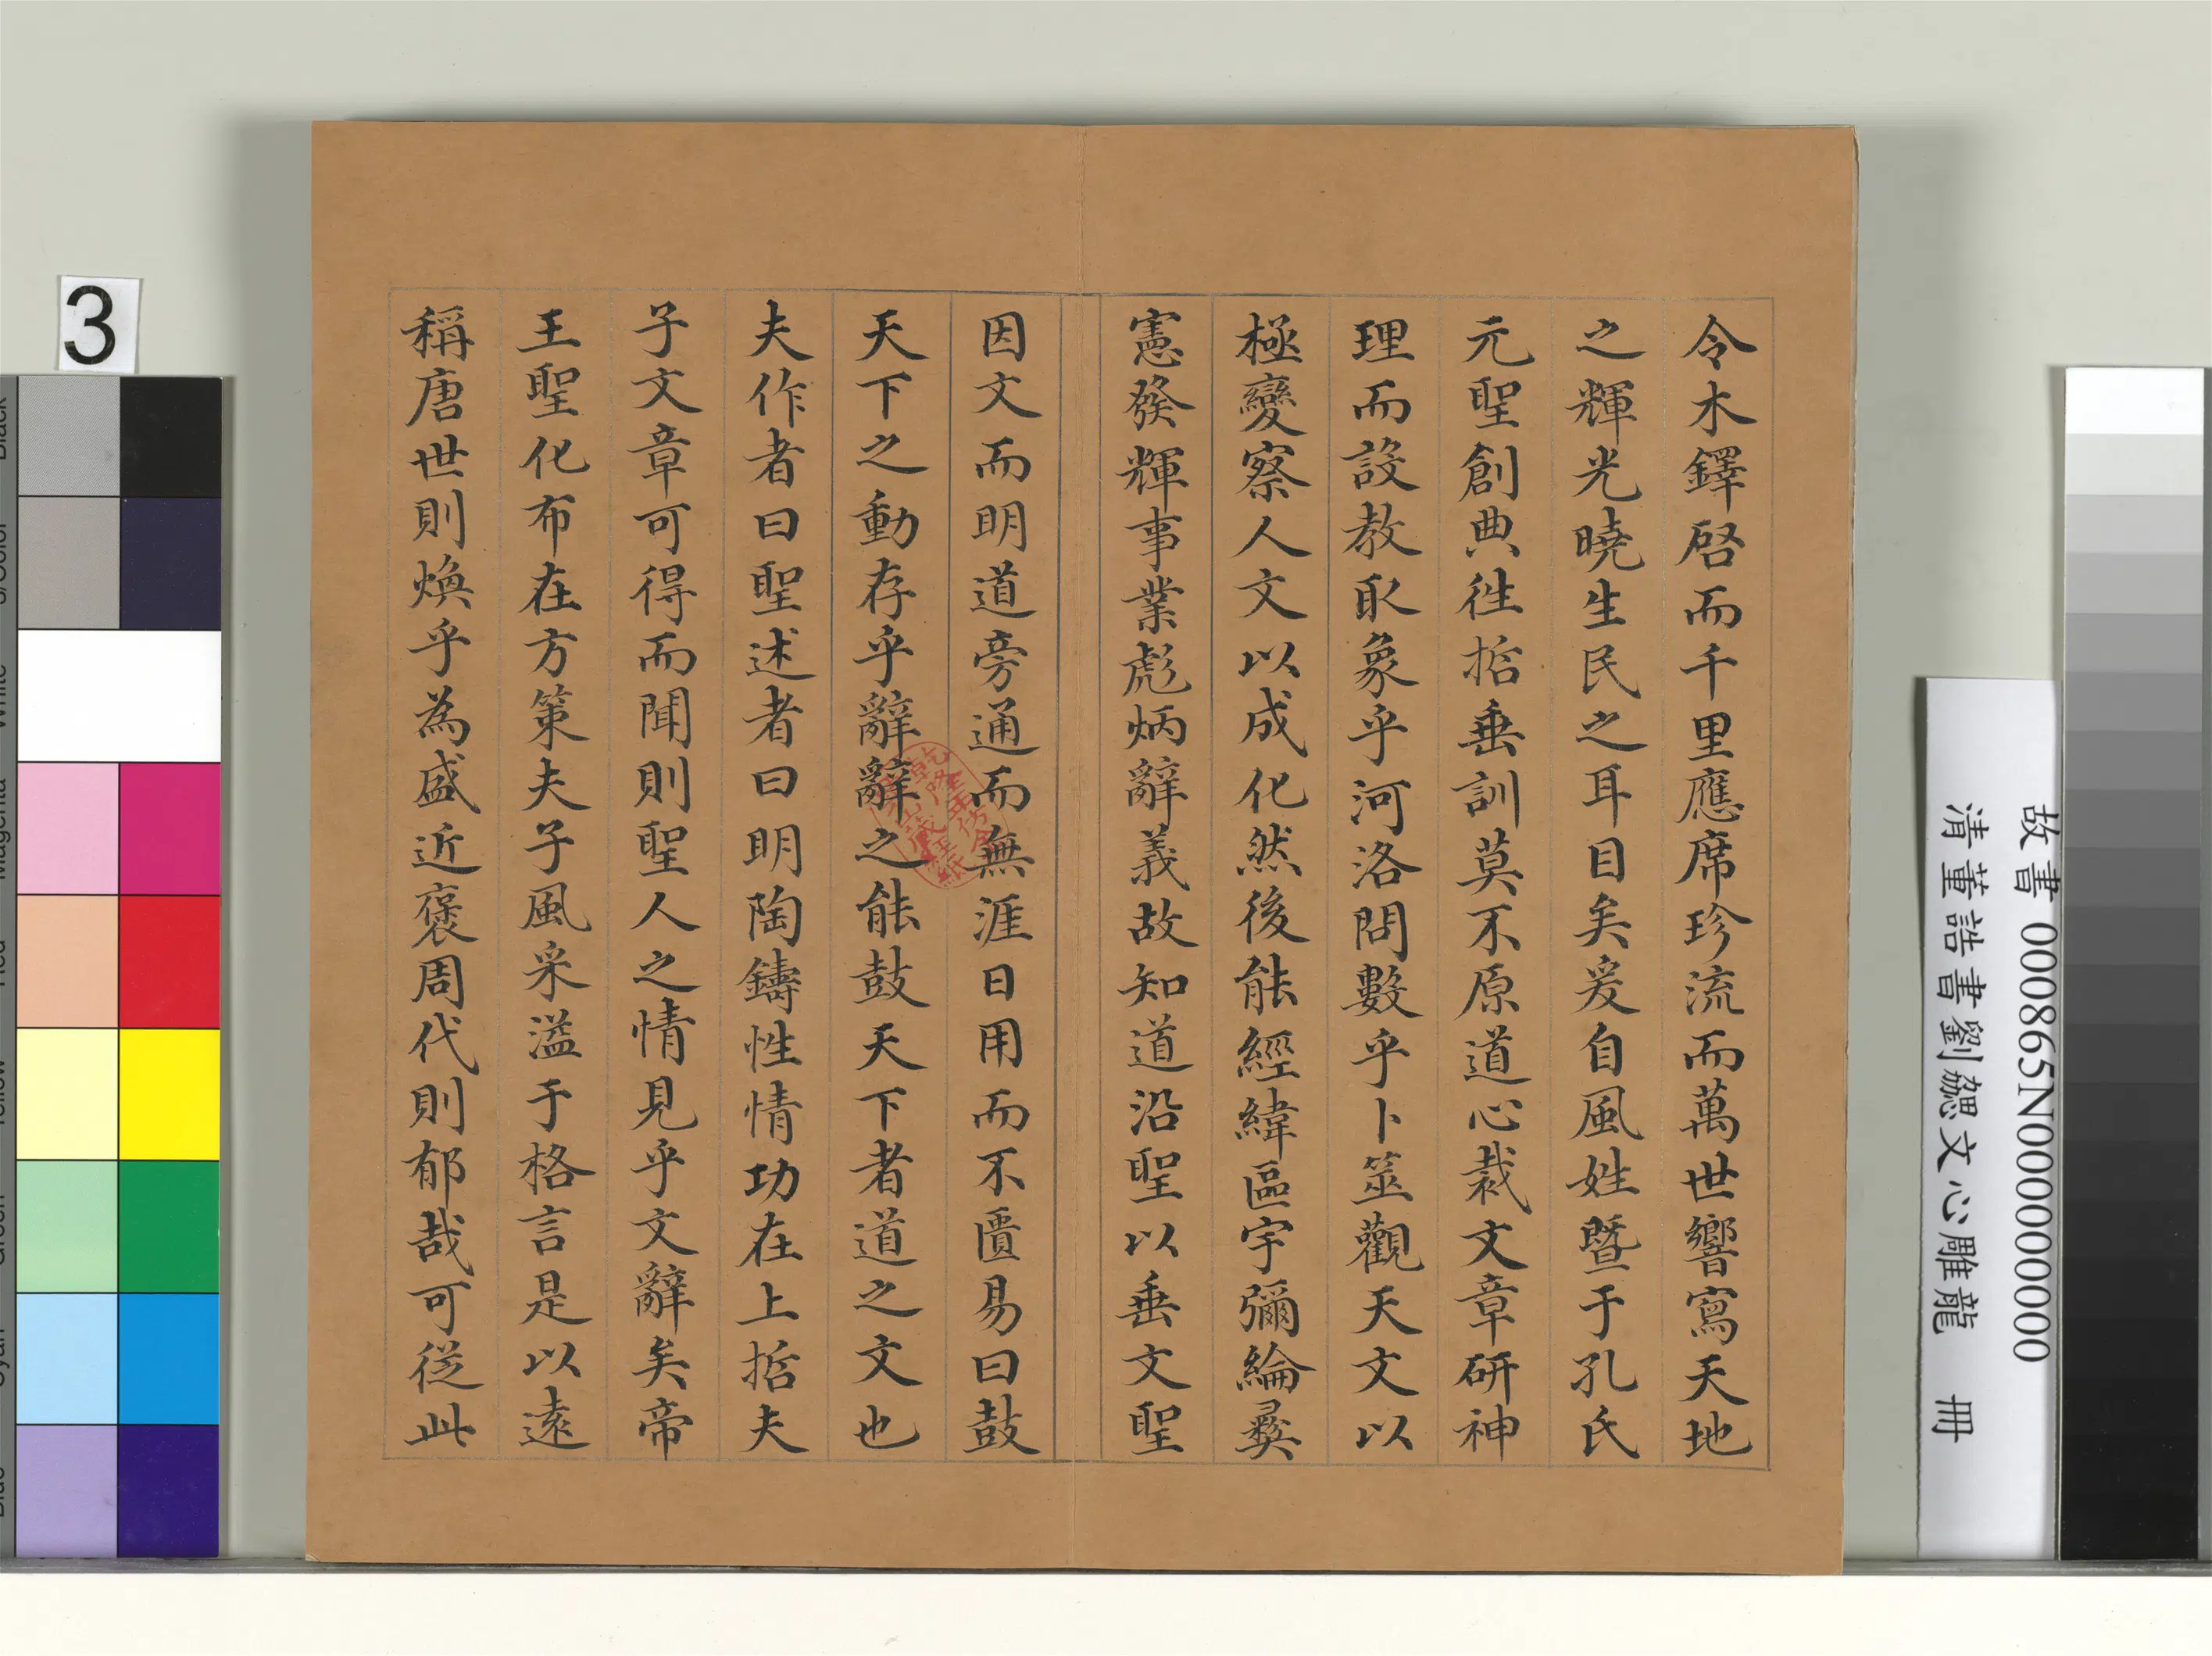 令木鐸啓而千里應席珍流而萬世響寫天地
之輝光曉生民之耳目矣爰自風姓暨于孔氏
元聖創典徃哲垂訓莫不原道心裁文章研神
理而設教取象乎河洛問數乎卜筮觀天文以
極變察人文以成化然後能經緯區宇彌綸彝
憲發輝事業彪炳辭義故知道沿聖以垂文聖
因文而明道旁通而無涯日用而不匱易曰鼓
天下之動存乎辭辭之能鼓天下者道之文也
夫作者曰聖述者曰明陶鑄性情功在上哲夫
子文章可得而聞則聖人之情見乎文辭矣帝
王聖化布在方策夫子風采溢于格言是以遠
稱唐世則煥乎為盛近褒周代則郁哉可從此
乾隆年仿金粟山藏經紙
故書 000865N000000000
清董誥書劉勰文心雕龍 冊
3